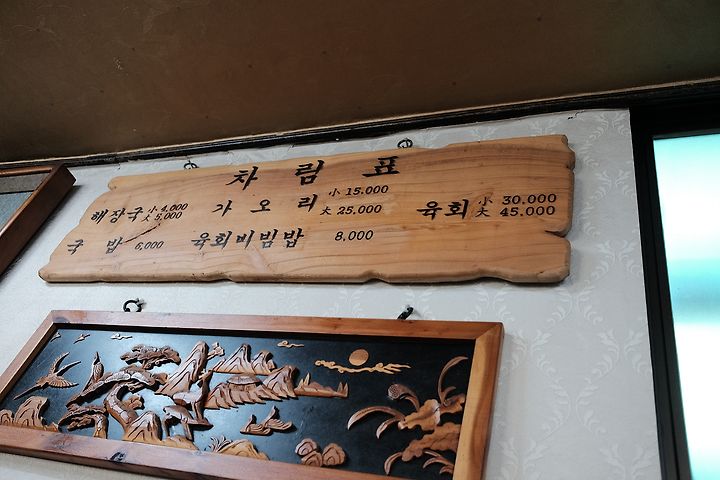 차림표
해장국 小 4,000 大 5,000
가오리 小 15.000 大 25,000
육회 小 30.000 大 45.000
국밥 6,000
육회비빔밥 8,000